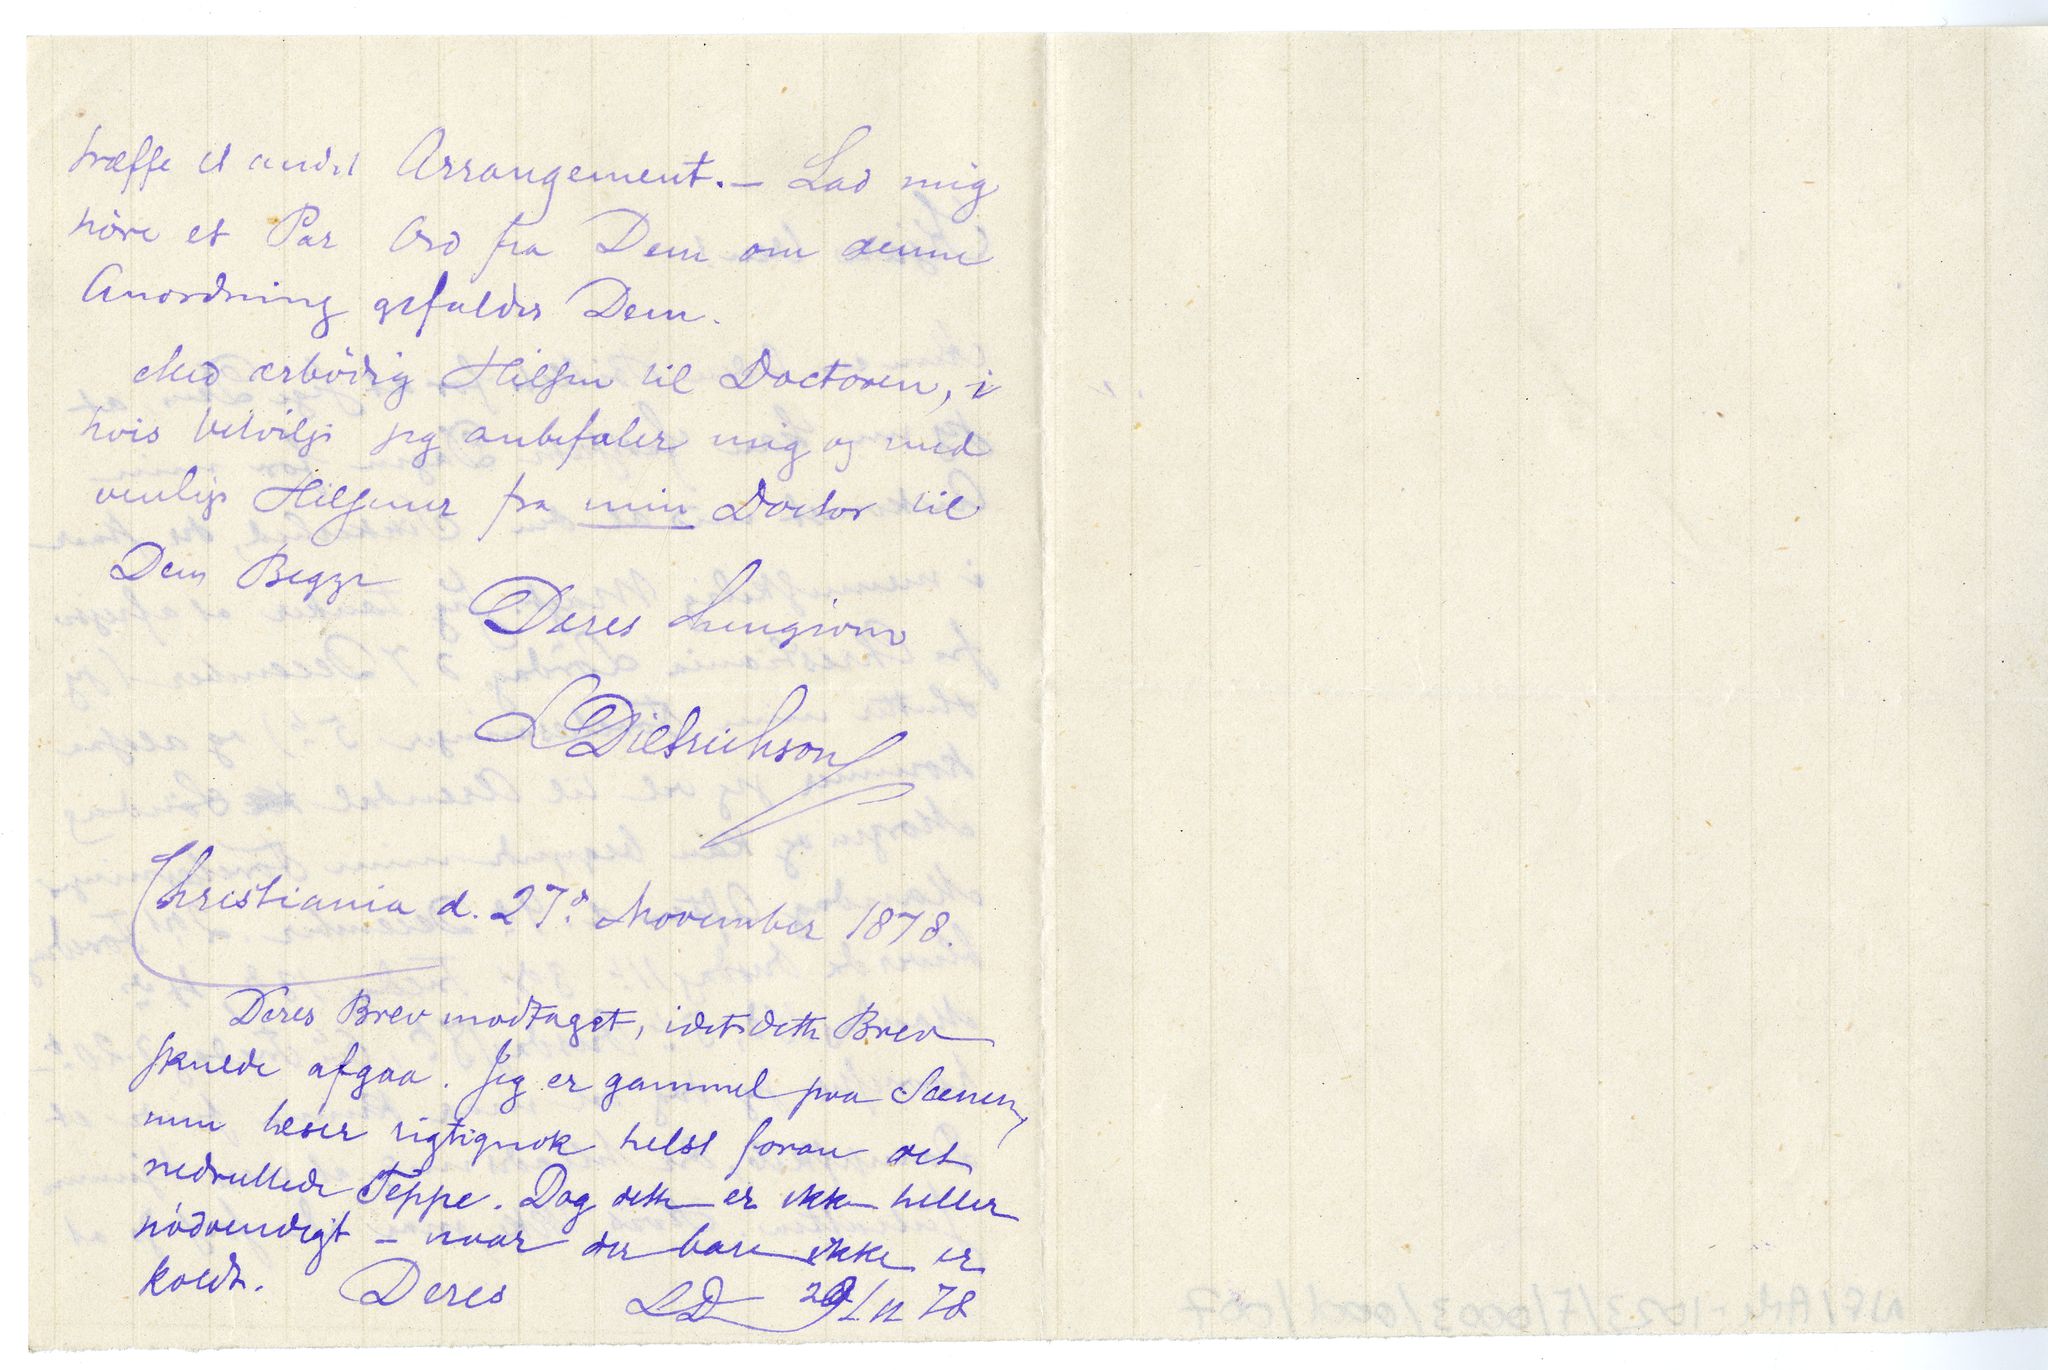 træffe et andet Arrangement. – Lad mig
høre et Par Ord fra Dem om denne
Anordning gefalder Dem.
Med ærbødig Hilsen til Doctoren, i
hvis Velvilje jeg anbefaler mig og med
venlige Hilsener fra min Doctor til
Dem Begge
Deres hengivne
LDietrichson
Christiania d. 27de November 1878.
Deres Brev modtaget, idet dette Brev
skulde afgaa. Jeg er gammel paa Scenen,
men læser rigtignok helst foran det
nedrullede Teppe. Dog dette er ikke heller
nödvendigt – naar der bare ikke er
koldt. Deres LD 29/11 78